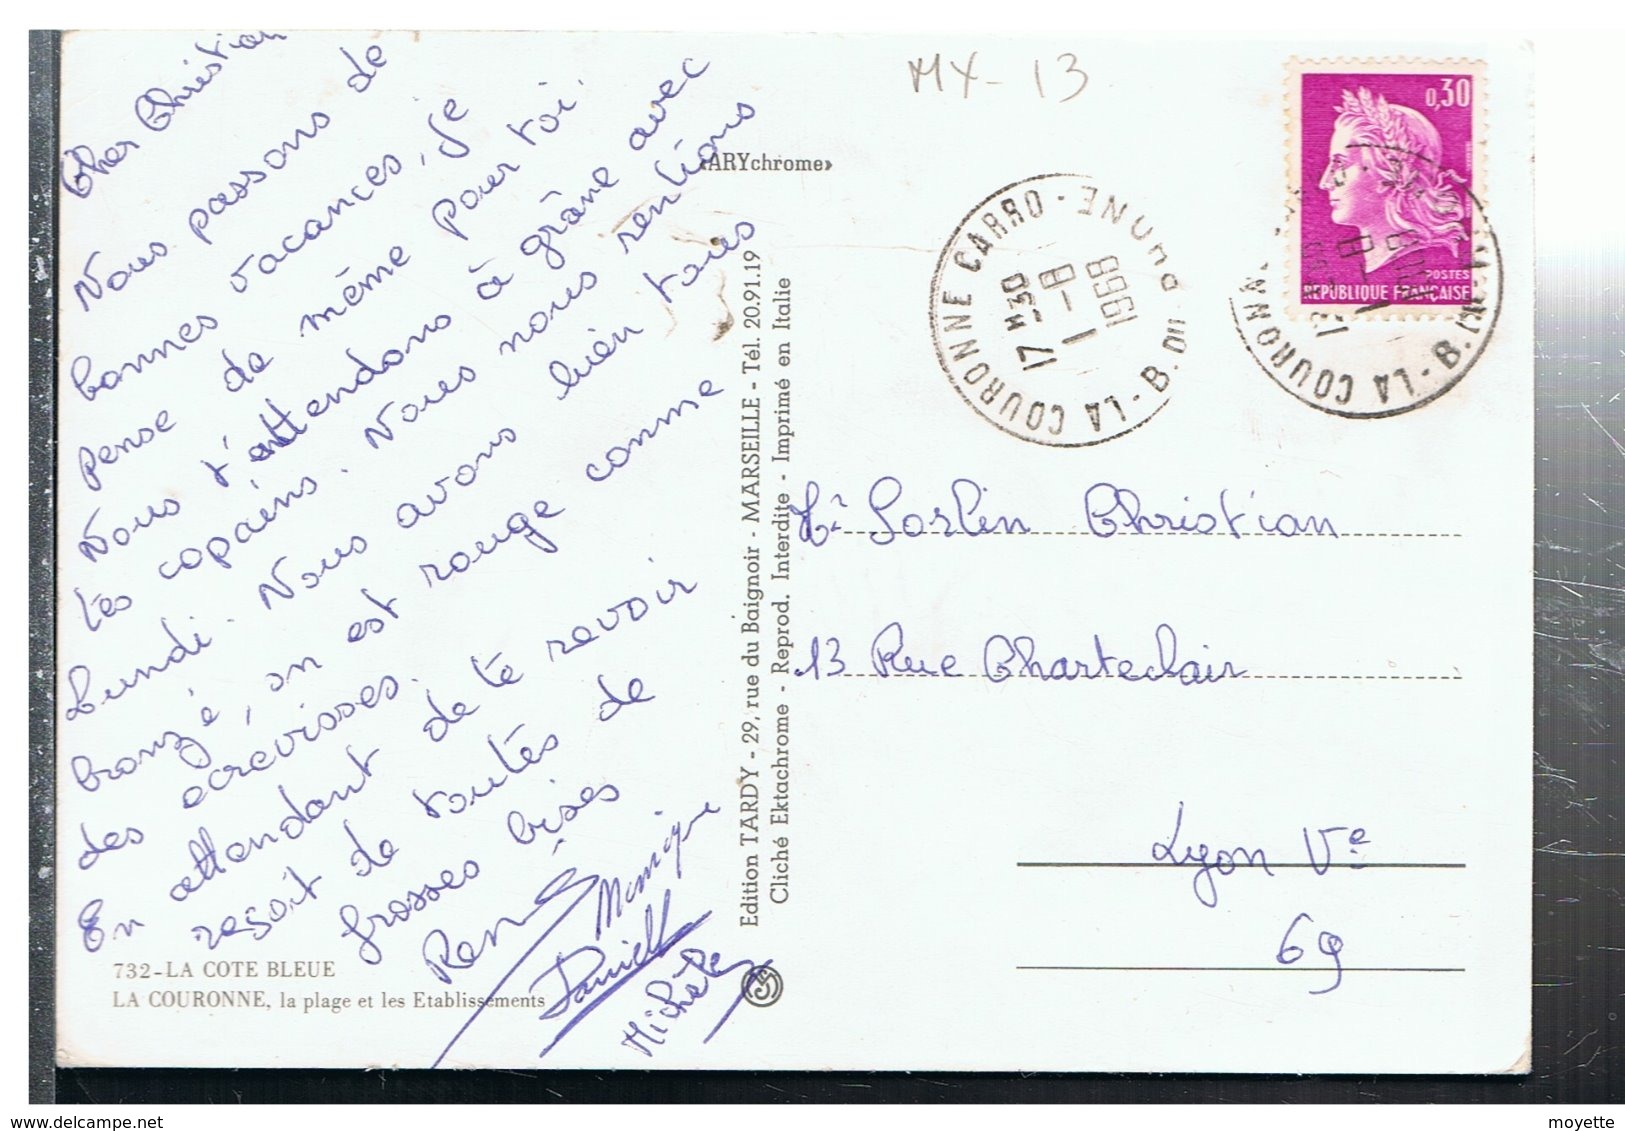 Cher Christian
Nous passons de
bonnes vacances, Je
pense de même pour toi.
Nous t'attendons à grâne avec
les copains. Nous nous rentions
Lundi. Nous avons bien tous
bronzé, on est rouge comme
des écrevisses.
En attendant de te revoir
reçoit de toutes de
grosses bises
René
Monique
Danielle
Michèle
732-LA COTE BLEUE
LA COURONNE, la plage et les Etablissements
Edition TARDY - 29, rue du Baignoir - MARSEILLE - Tél. 20.91.19
Cliché Ektachrome - Reprod. Interdite - Imprimé en Italie
MX-13
«ARYchrome»
LA COURONNE CARRO - B. DU RHONE
17 H30
1-8
1968
0,30
POSTES
REPUBLIQUE FRANÇAISE
LA COURONN
Mr Sorlin Christian
13 Rue Charteclair
Lyon Ve
69
moyette